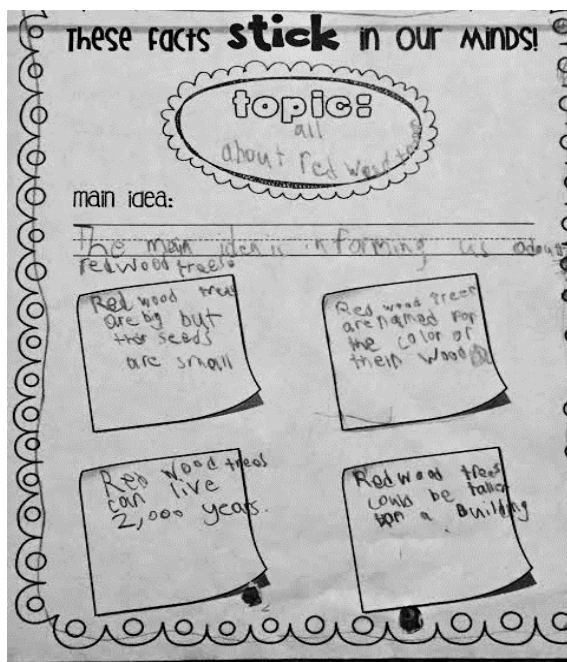 These Facts stick in our Minds!
topic:
all
about red wood trees
main idea:
The main idea is informing us adout
redwood trees.
Red wood trees
are big but
ther seeds
are small
Red wood Trees
are named for
the color of
their wood
Red wood trees
can live
2,000 years.
Redwood trees
could be taller
ten a Building